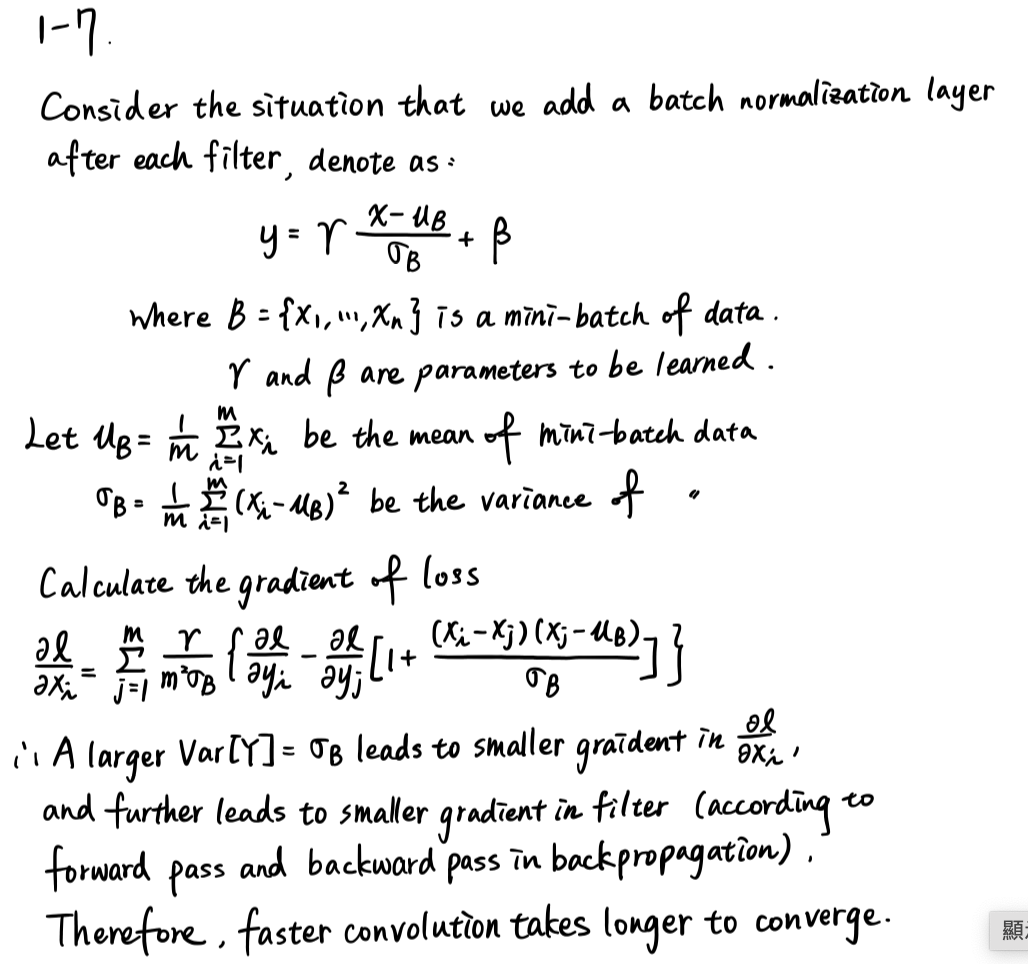 1-7.
Consider the situation that we add a batch normalization layer
after each filter, denote as:
y = γ (x - μ_B)/σ_B + β
where B = {x₁, ..., xₙ} is a mini-batch of data.
γ and β are parameters to be learned.
Let μ_B = 1/m Σ_{i=1}^{m} x_i be the mean of mini-batch data
σ_B = 1/m Σ_{i=1}^{m} (x_i - μ_B)² be the variance of 〃
Calculate the gradient of loss
∂l/∂x_i = Σ_{j=1}^{m} γ/(m²σ_B) { ∂l/∂y_i - ∂l/∂y_j [1 + (x_i - x_j)(x_j - μ_B)/σ_B] }
∴ A larger Var[Y] = σ_B leads to smaller graident in ∂l/∂x_i,
and further leads to smaller gradient in filter (according to
forward pass and backward pass in backpropagation).
Therefore, faster convolution takes longer to converge.